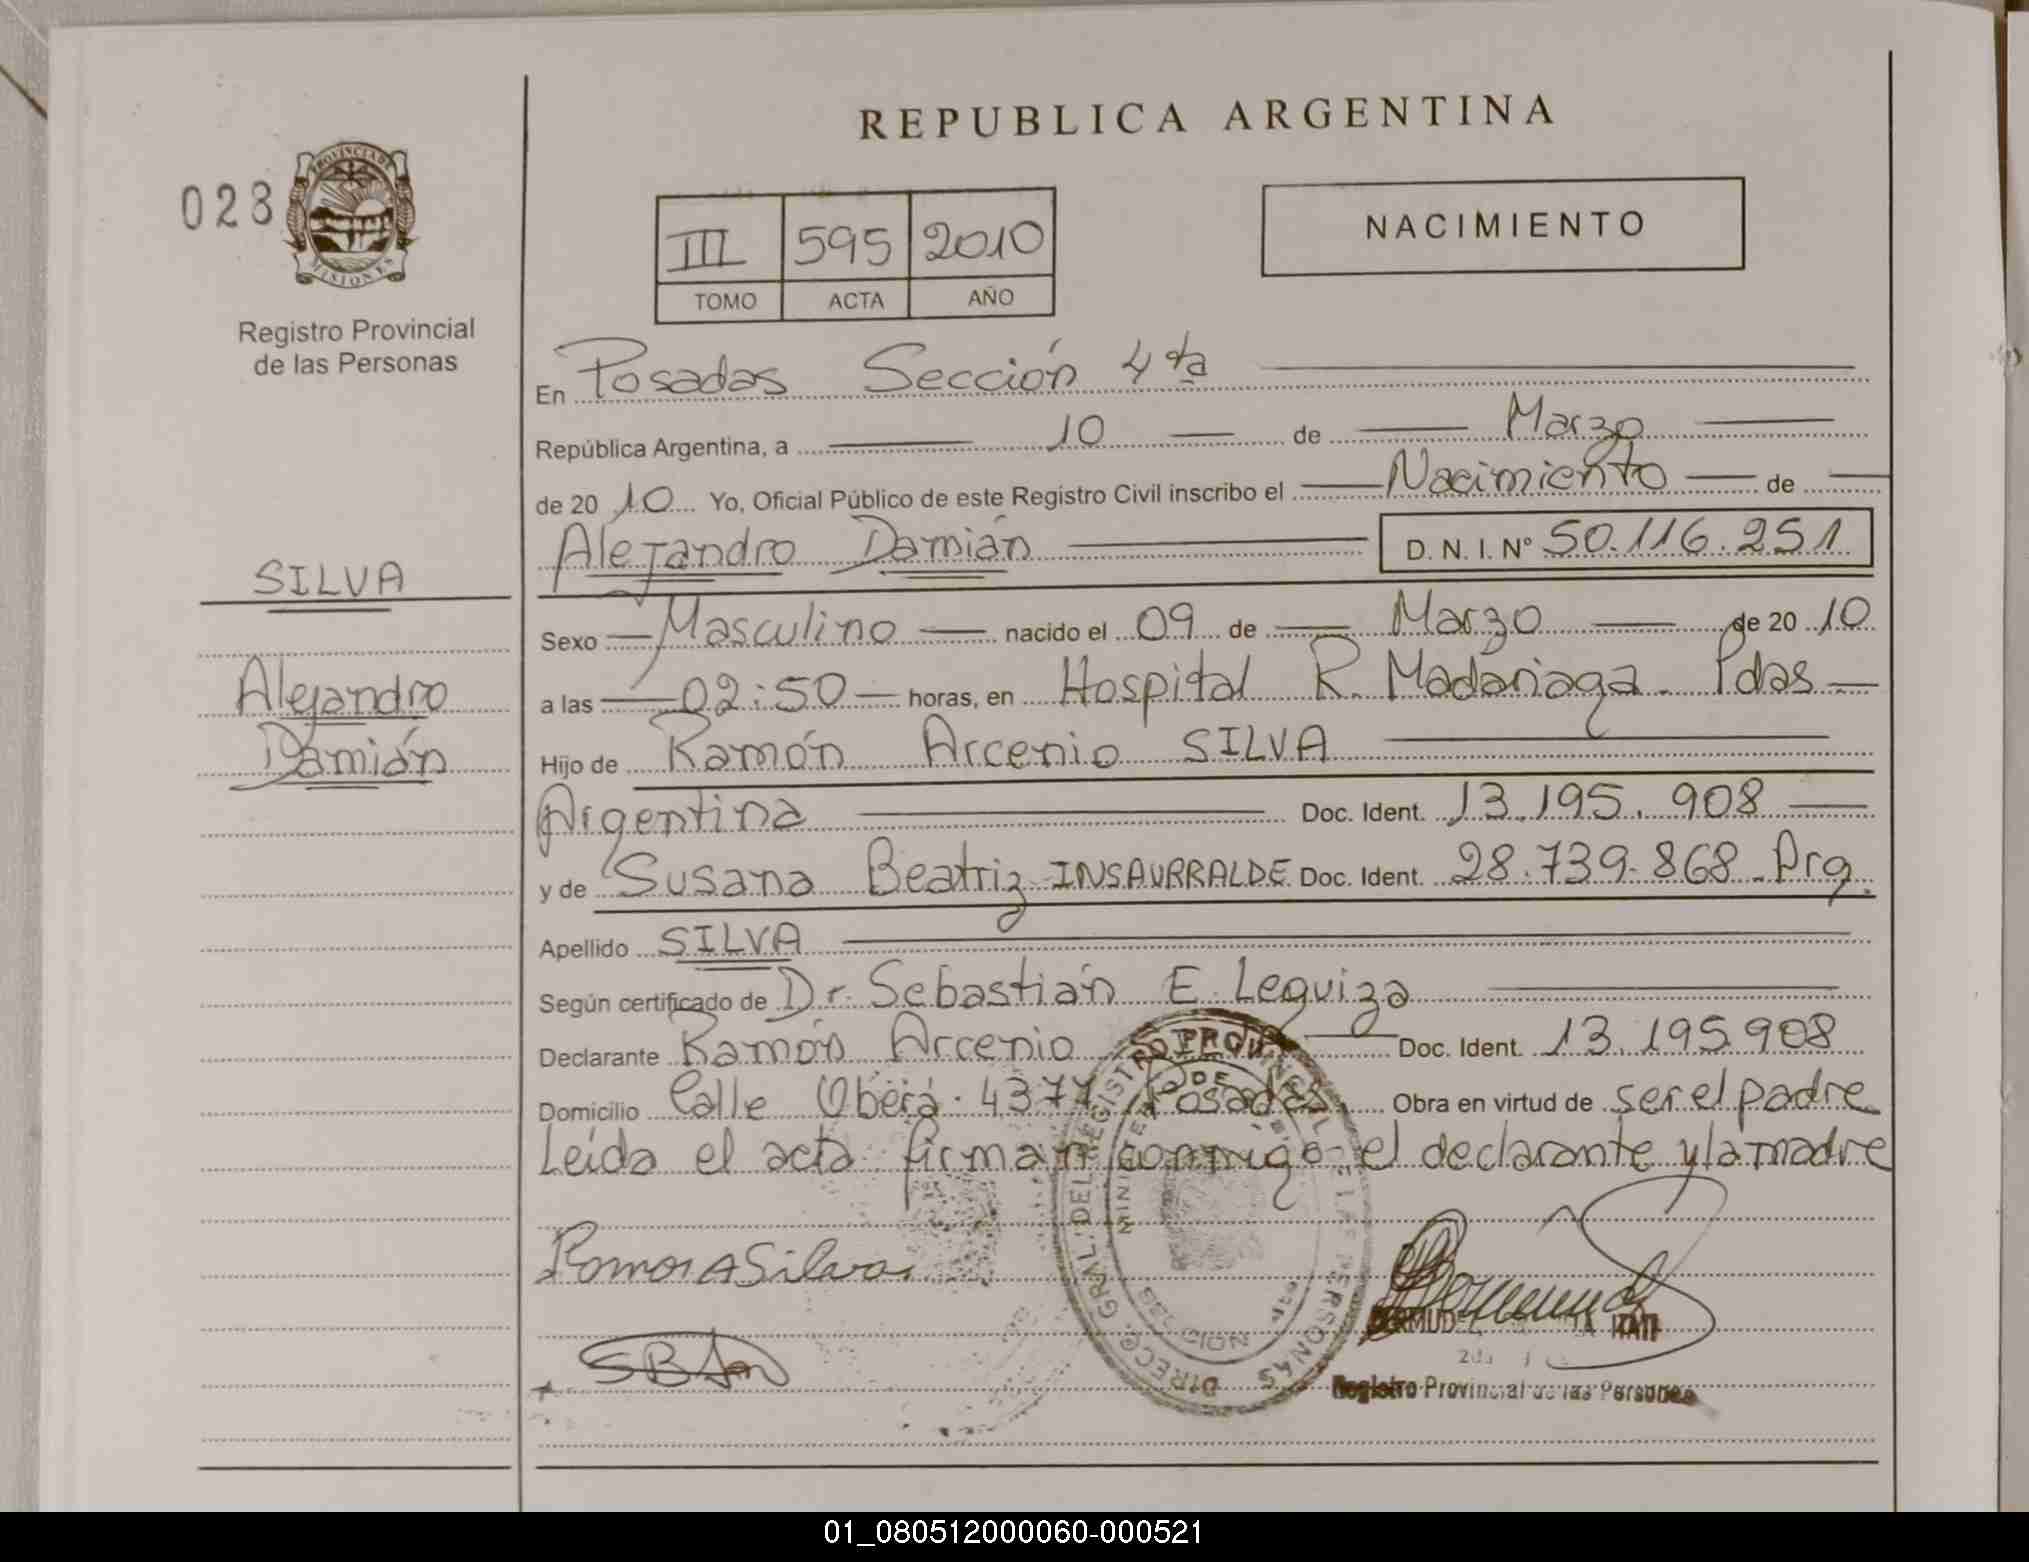 REPUBLICA ARGENTINA
028
PROVINCIA DE MISIONES
Registro Provincial
de las Personas
III 595 2010
TOMO ACTA AÑO
NACIMIENTO
En Posadas Sección 4ta
República Argentina, a 10 de Marzo
de 2010 Yo, Oficial Público de este Registro Civil inscribo el Nacimiento de
Alejandro Damián D. N. I. Nº 50.116.251
SILVA
Alejandro
Damián
Sexo Masculino nacido el 09 de Marzo de 2010
a las 02:50 horas, en Hospital R. Madariaga. Pdas
Hijo de Ramón Arcenio SILVA
Argentina Doc. Ident. 13.195.908
y de Susana Beatriz INSAURRALDE Doc. Ident. 28.739.868 Arg.
Apellido SILVA
Según certificado de Dr. Sebastián E. Leguiza
Declarante Ramón Arcenio Doc. Ident. 13.195.908
Domicilio Calle Oberá 4377 Posadas Obra en virtud de ser el padre
Leída el acta firman conmigo el declarante y la madre
Ramon A Silva
DIRECC. GRAL. DEL REGISTRO PROVINCIAL DE LAS PERSONAS
Registro Provincial de las Personas
01_080512000060-000521